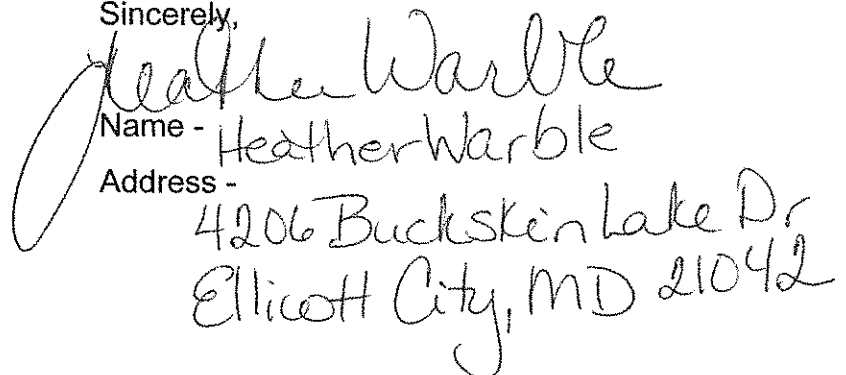 Sincerely,
Heather Warble
Name - Heather Warble
Address -
4206 Buckskin Lake Dr
Ellicott City, MD 21042